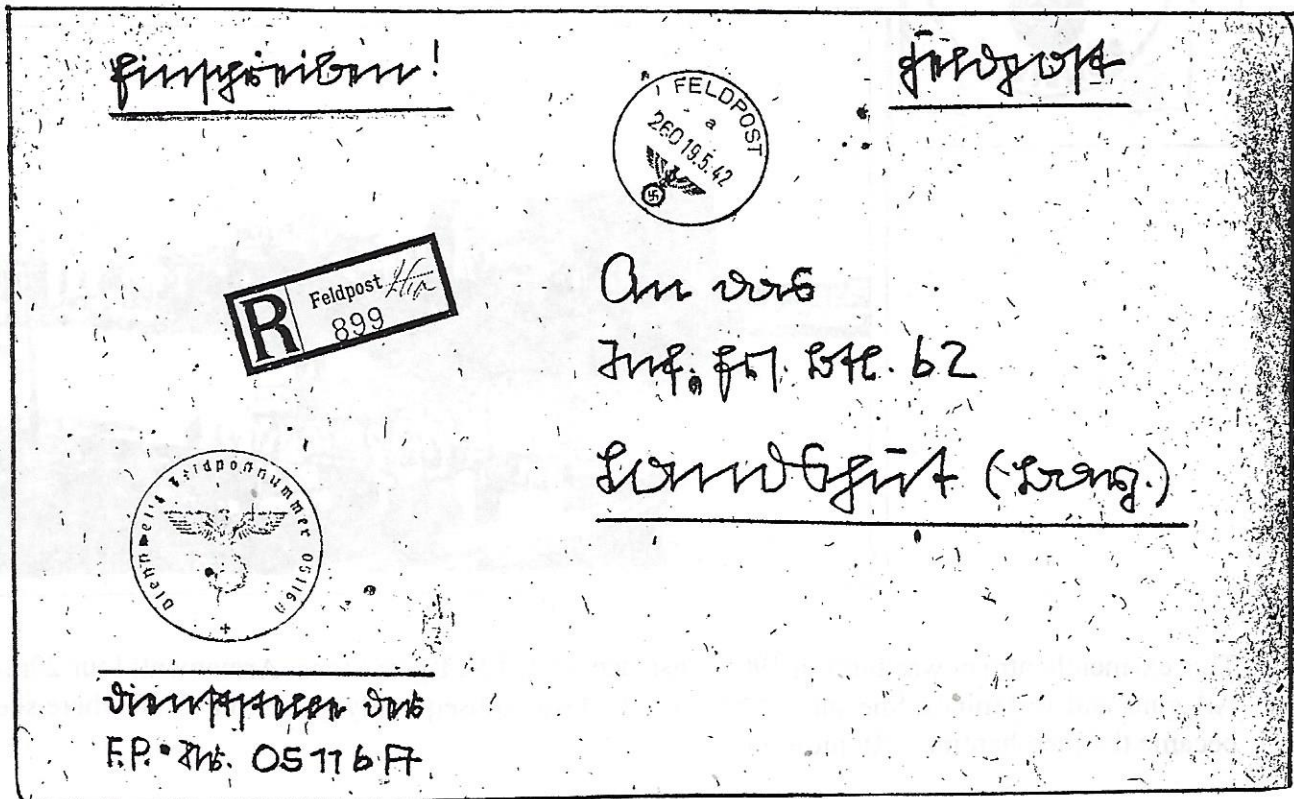 Einschreiben!
Feldpost
FELDPOST
a
260 19.5.42
R Feldpost
899
An das
Inf. Ers. Btl. 62
Landshut (Bay.)
Feldpostnummer 05116A
Dienststelle der
F.P. Nr. 05116 A